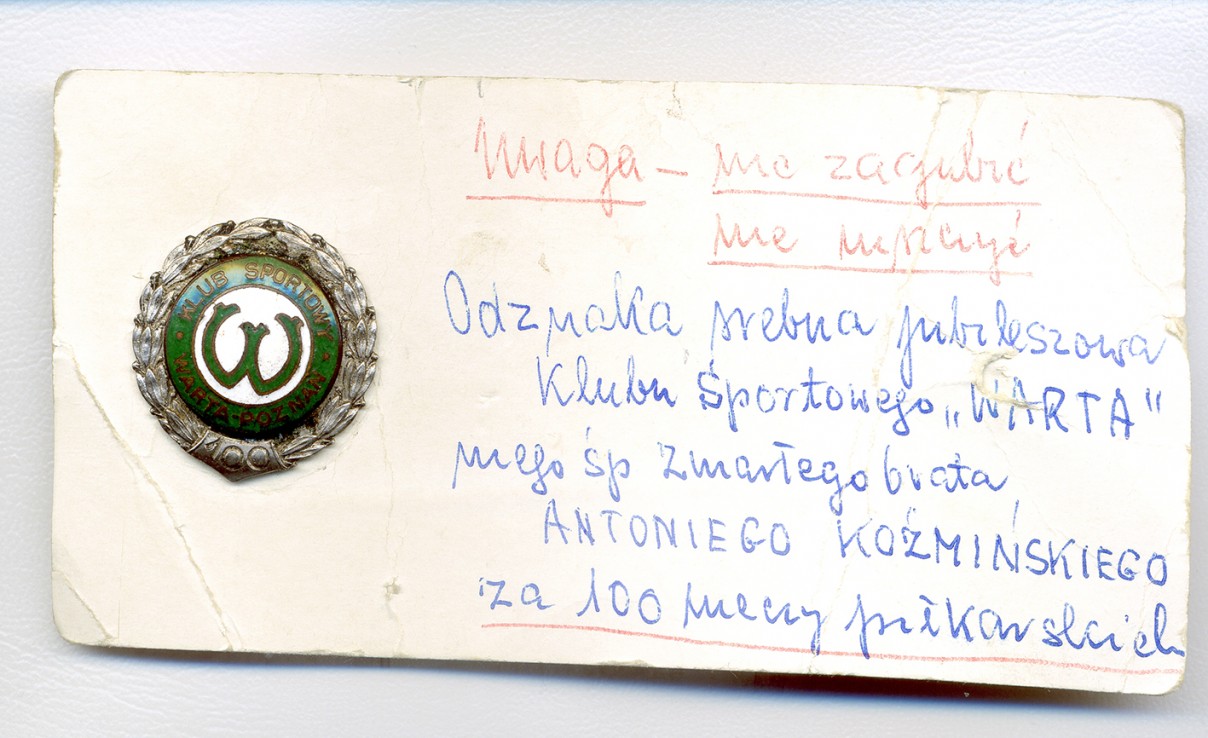 KLUB SPORTOWY
WARTA-POZNAŃ
100
Uwaga – nie zagubić
nie niszczyć
Odznaka srebna jubileszowa
Klubu Sportowego „WARTA"
mego śp zmarłego brata
ANTONIEGO KOŹMIŃSKIEGO
za 100 meczy piłkarskich